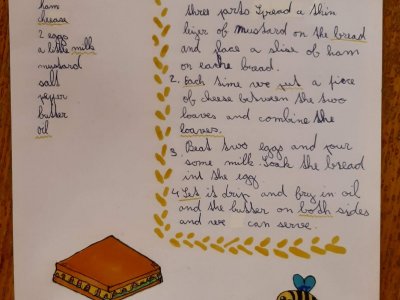 ham
cheease
2 eggs
a little milk
mustard
salt
pepper
butter
oil
three parts Spread a thin
layer of mustard on the bread
and place a slice of ham
on eache bread.
2. Each time we put a piece
of cheese between the two
loaves and combine the
loaves.
3. Beat two eggs and pour
some milk Soak the bread
int the egg
4. Let is drip and fry in oil
and the butter on both sides
and we can serve.